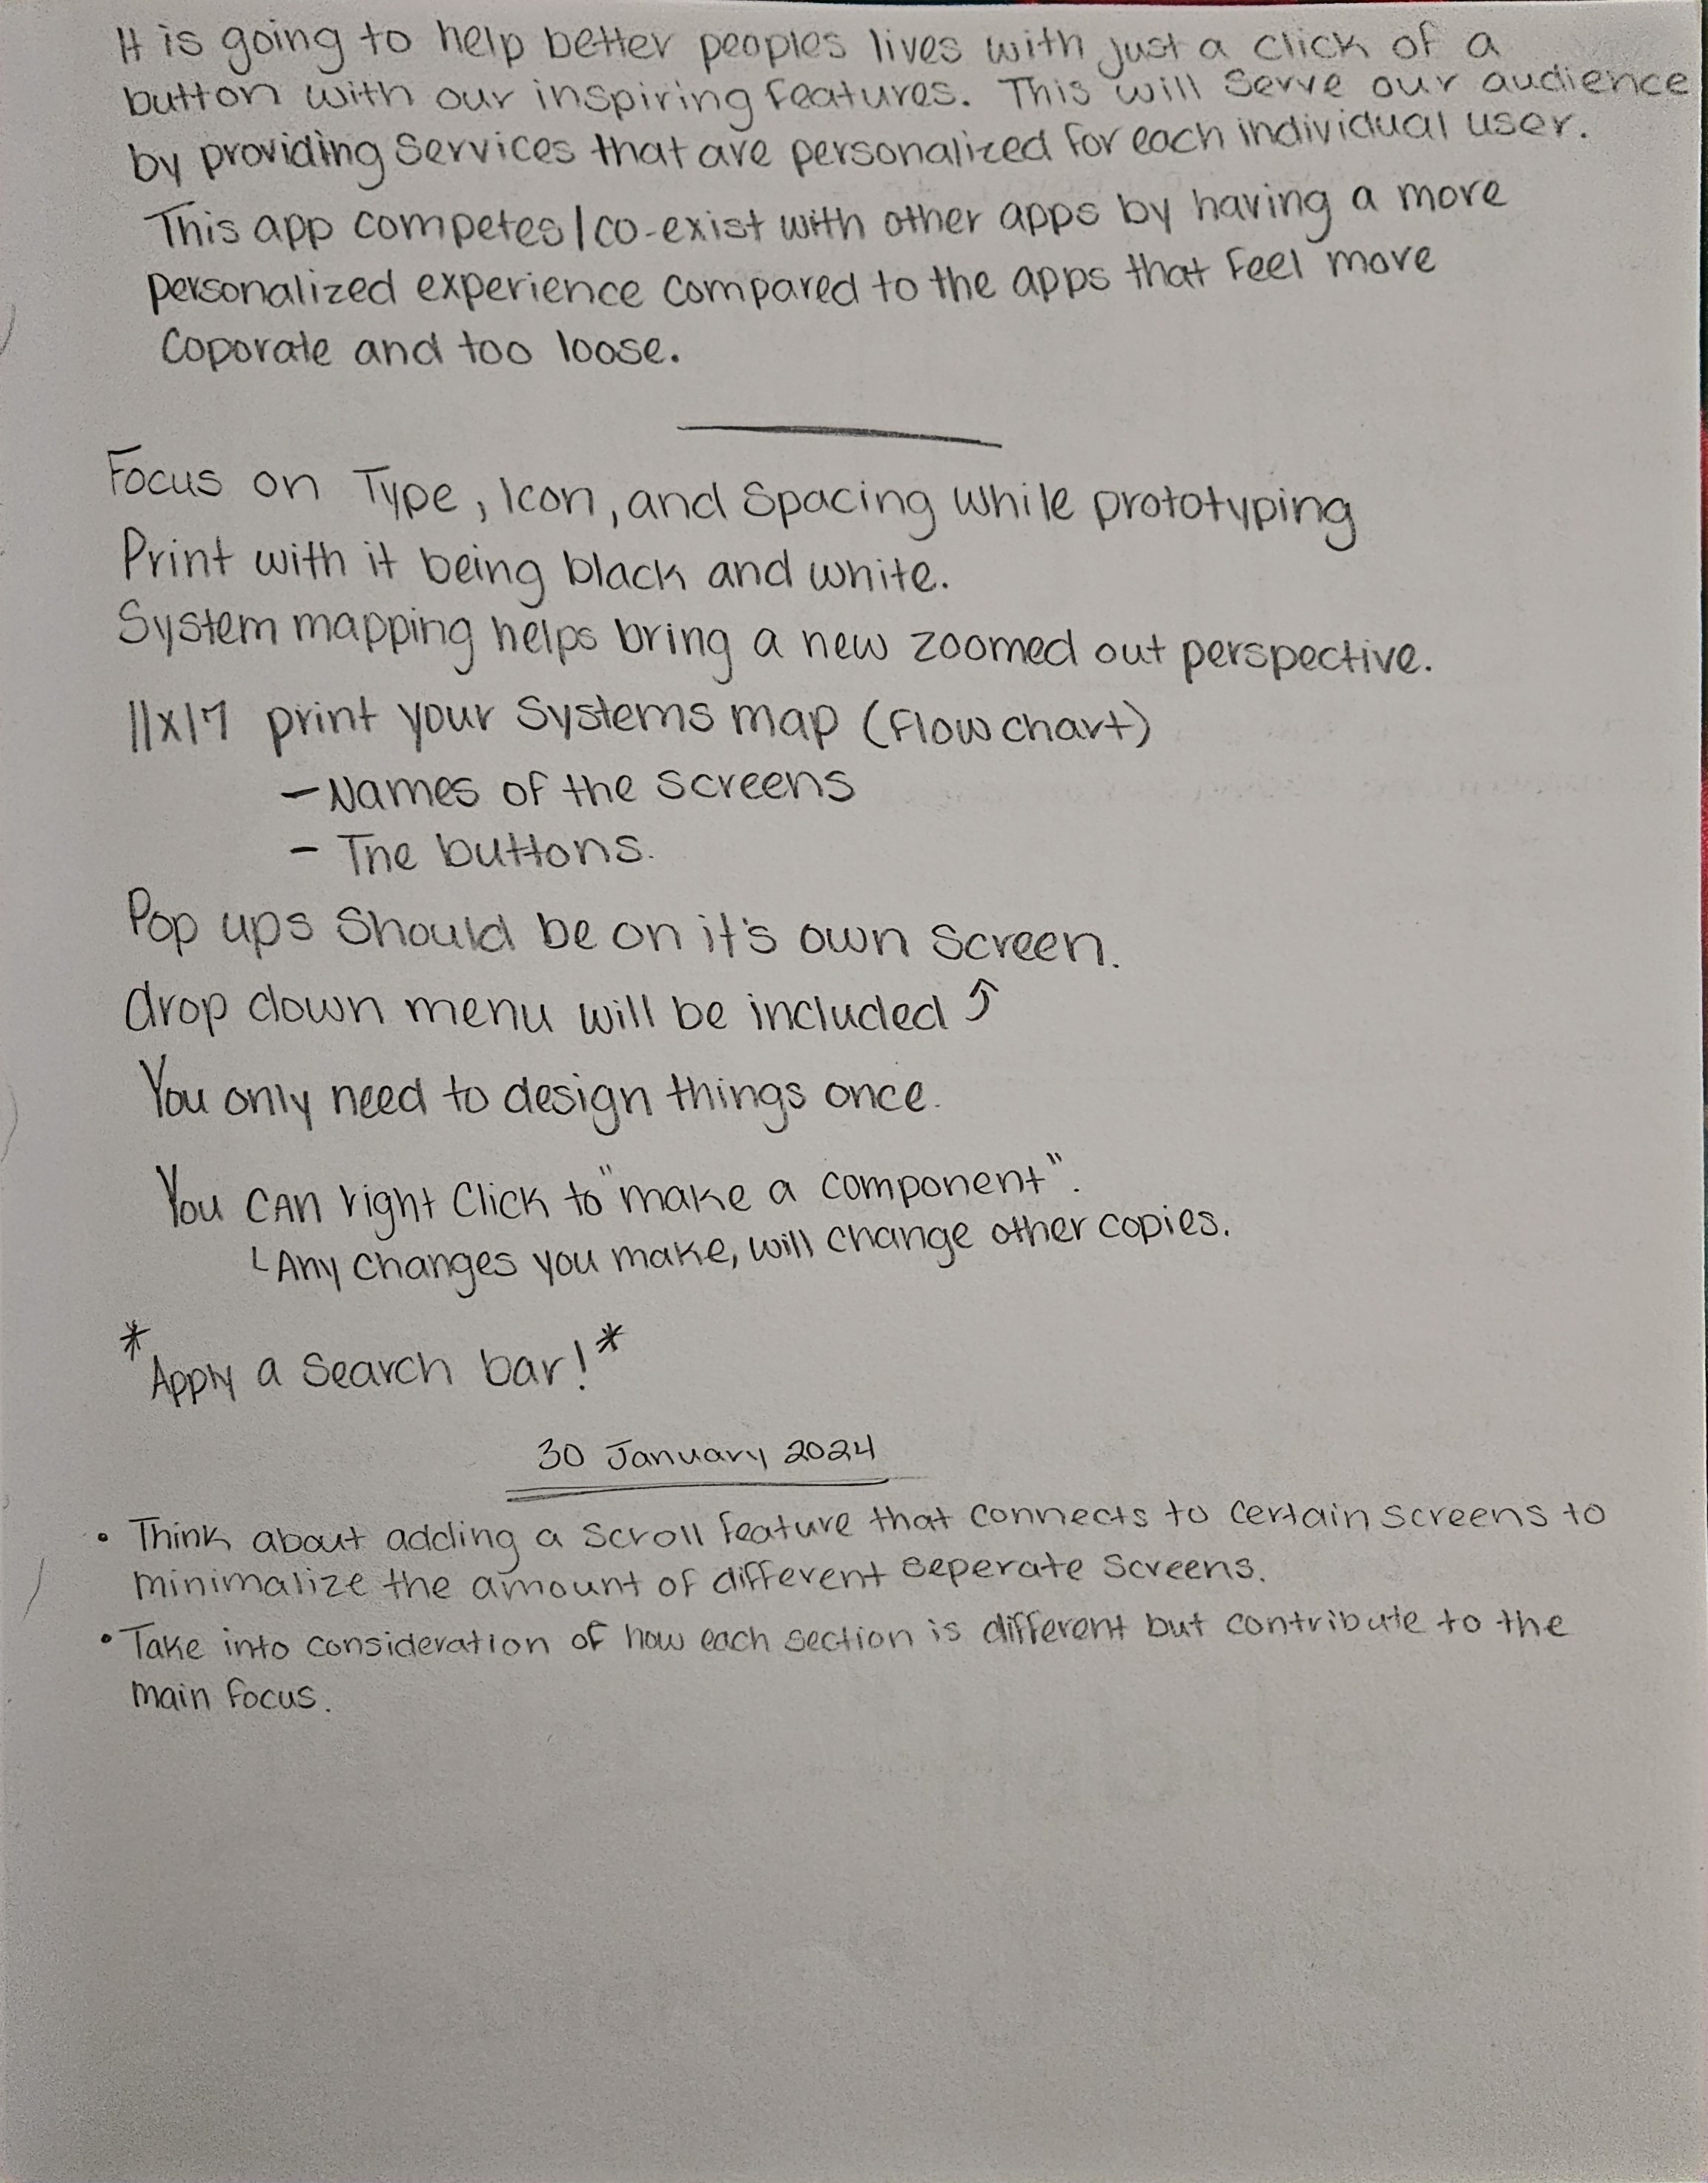 It is going to help better peoples lives with just a click of a
button with our inspiring features. This will serve our audience
by providing services that are personalized for each individual user.
This app competes/co-exist with other apps by having a more
personalized experience compared to the apps that feel more
Coporate and too loose.
Focus on Type, Icon, and Spacing while prototyping
Print with it being black and white.
System mapping helps bring a new zoomed out perspective.
11x17 print your systems map (flow chart)
- Names of the screens
- The buttons.
Pop ups should be on it's own screen.
drop down menu will be included ⤴
You only need to design things once.
You CAN right click to "make a component".
└ Any changes you make, will change other copies.
* Apply a search bar! *
30 January 2024
• Think about adding a scroll feature that connects to certain screens to
minimalize the amount of different seperate screens.
• Take into consideration of how each section is different but contribute to the
main focus.